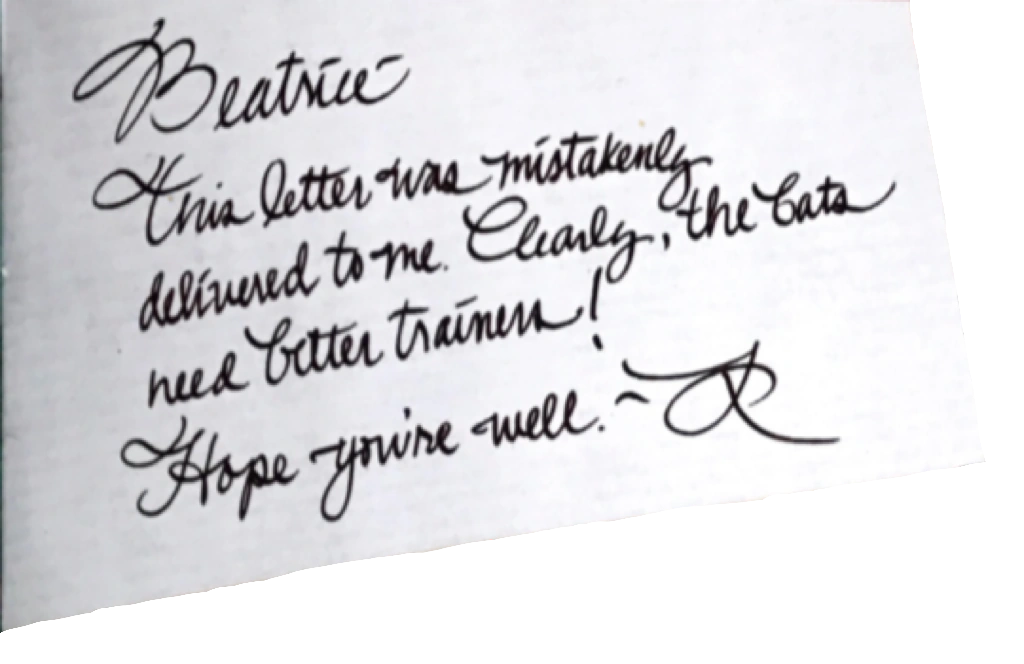 Beatrice-
This letter was mistakenly
delivered to me. Clearly, the bats
need better trainers!
Hope you're well. ~